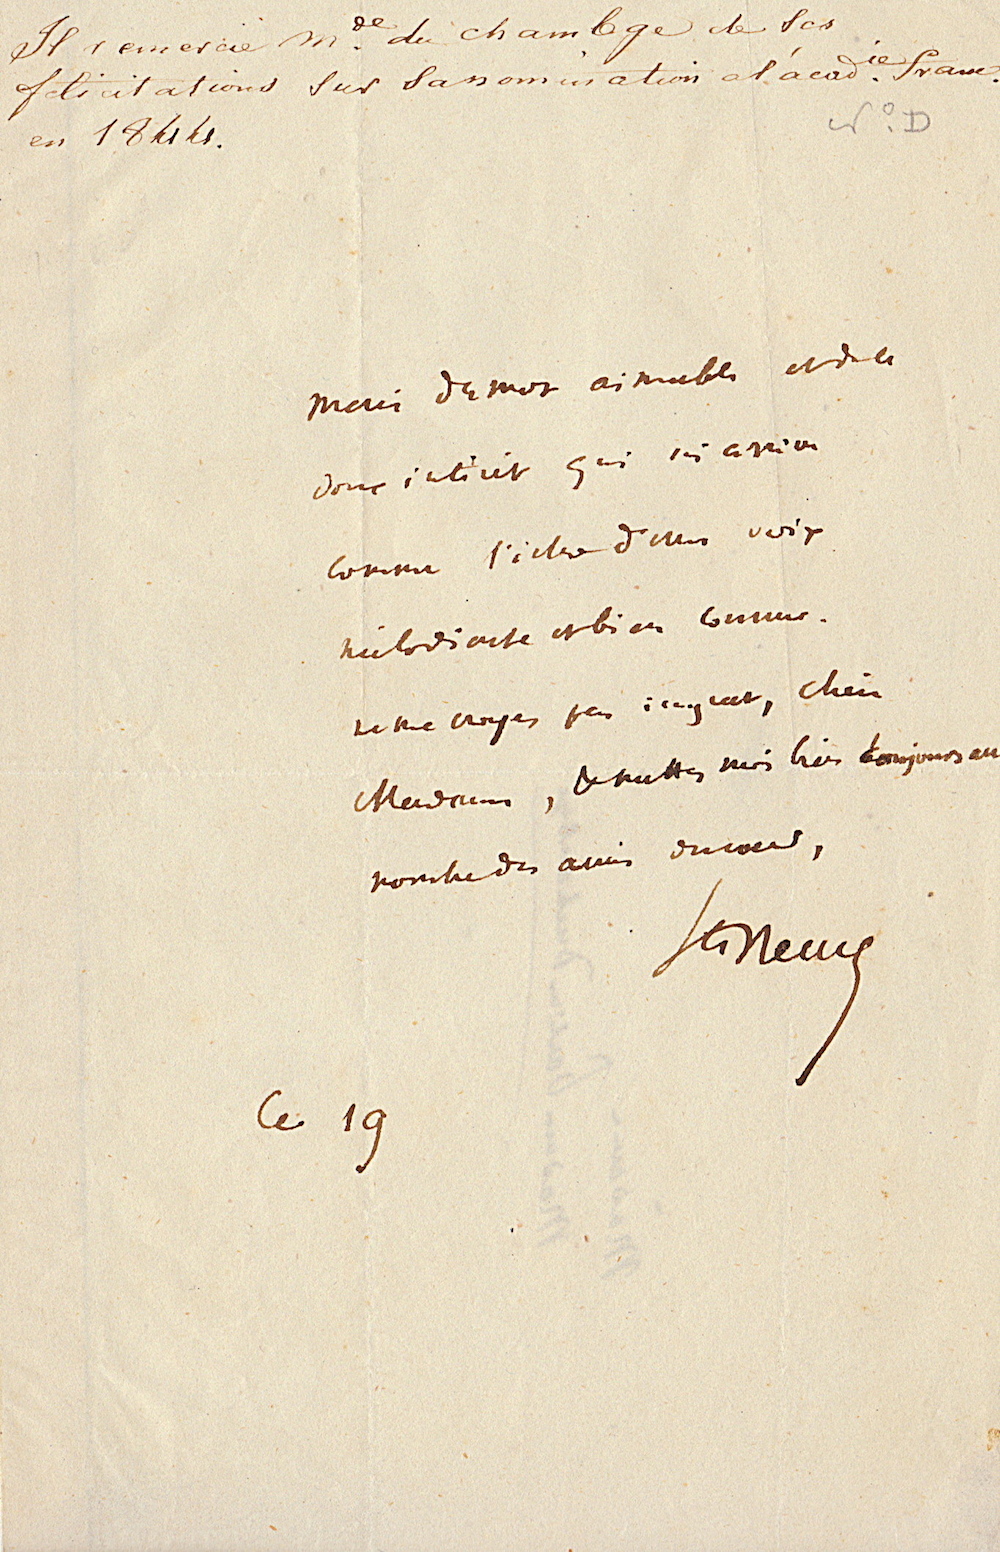 Il remercie M.de du chambge de ses
félicitations sur sa nomination à l'acad.ie franc.
en 1844.
N.o D
merci du mot aimable et de le
doux intérêt qui m'arrive
comme l'écho d'une voix
mélodieuse et bien connue.
ne me croyez pas ingrat, chère
Madame, & mettez moi bien toujours au
nombre des amis du coeur,
Ste Beuve
Ce 19